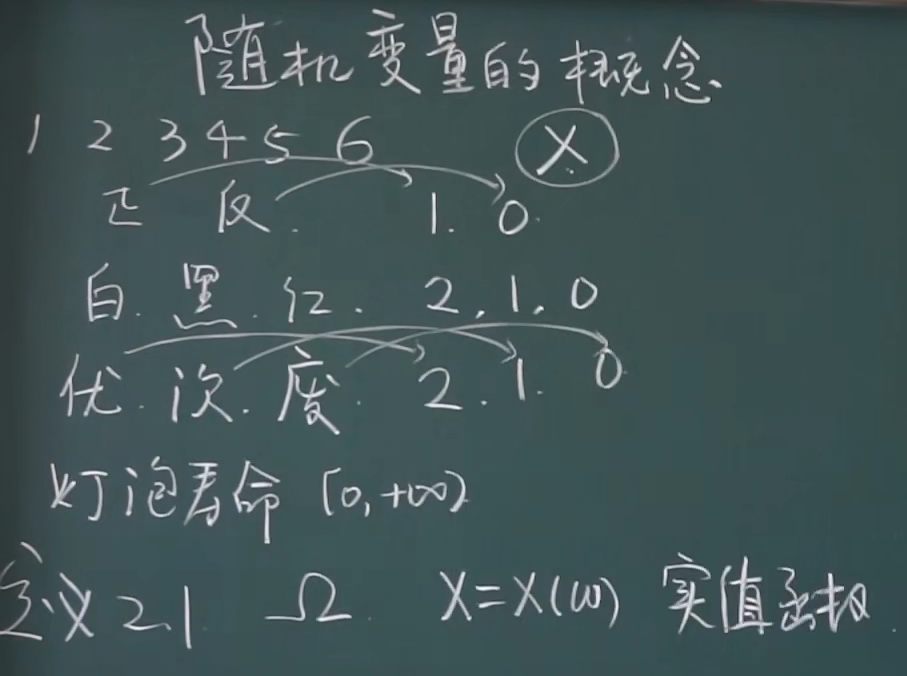 随机变量的概念
1 2 3 4 5 6 X
正 反. 1. 0.
白. 黑. 红. 2. 1. 0
优. 次. 废. 2. 1. 0
灯泡寿命 [0,+∞)
定义2.1 Ω X=X(ω) 实值函数.